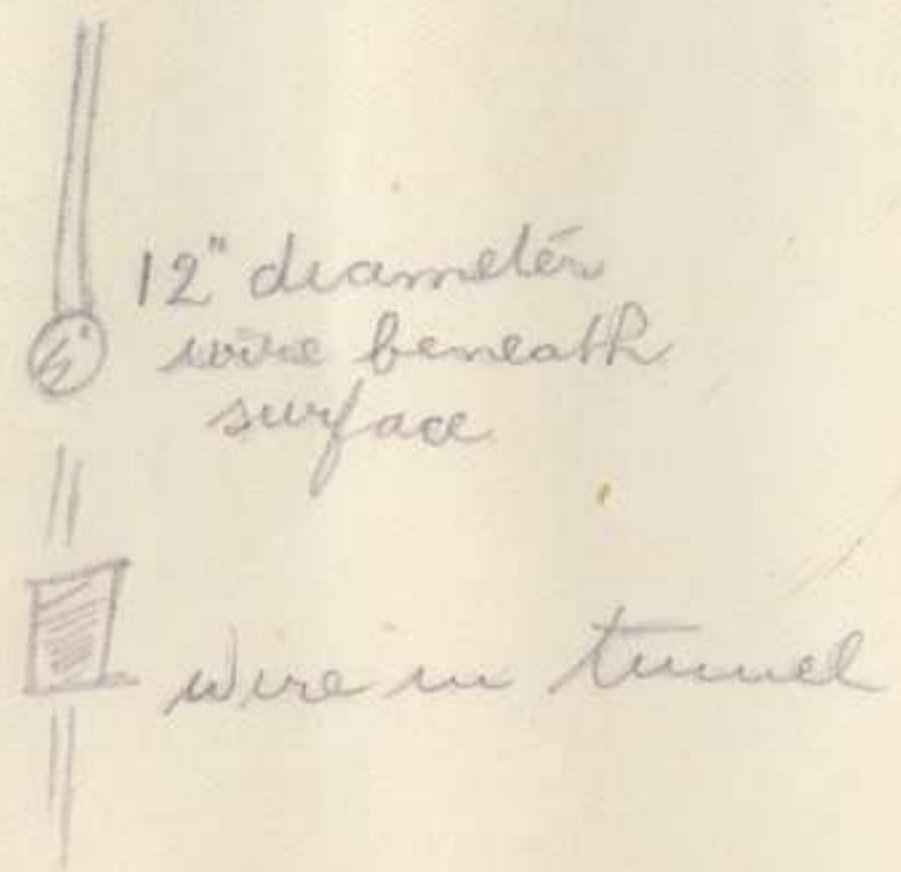 12" diameter
wire beneath
surface
wire in tunnel